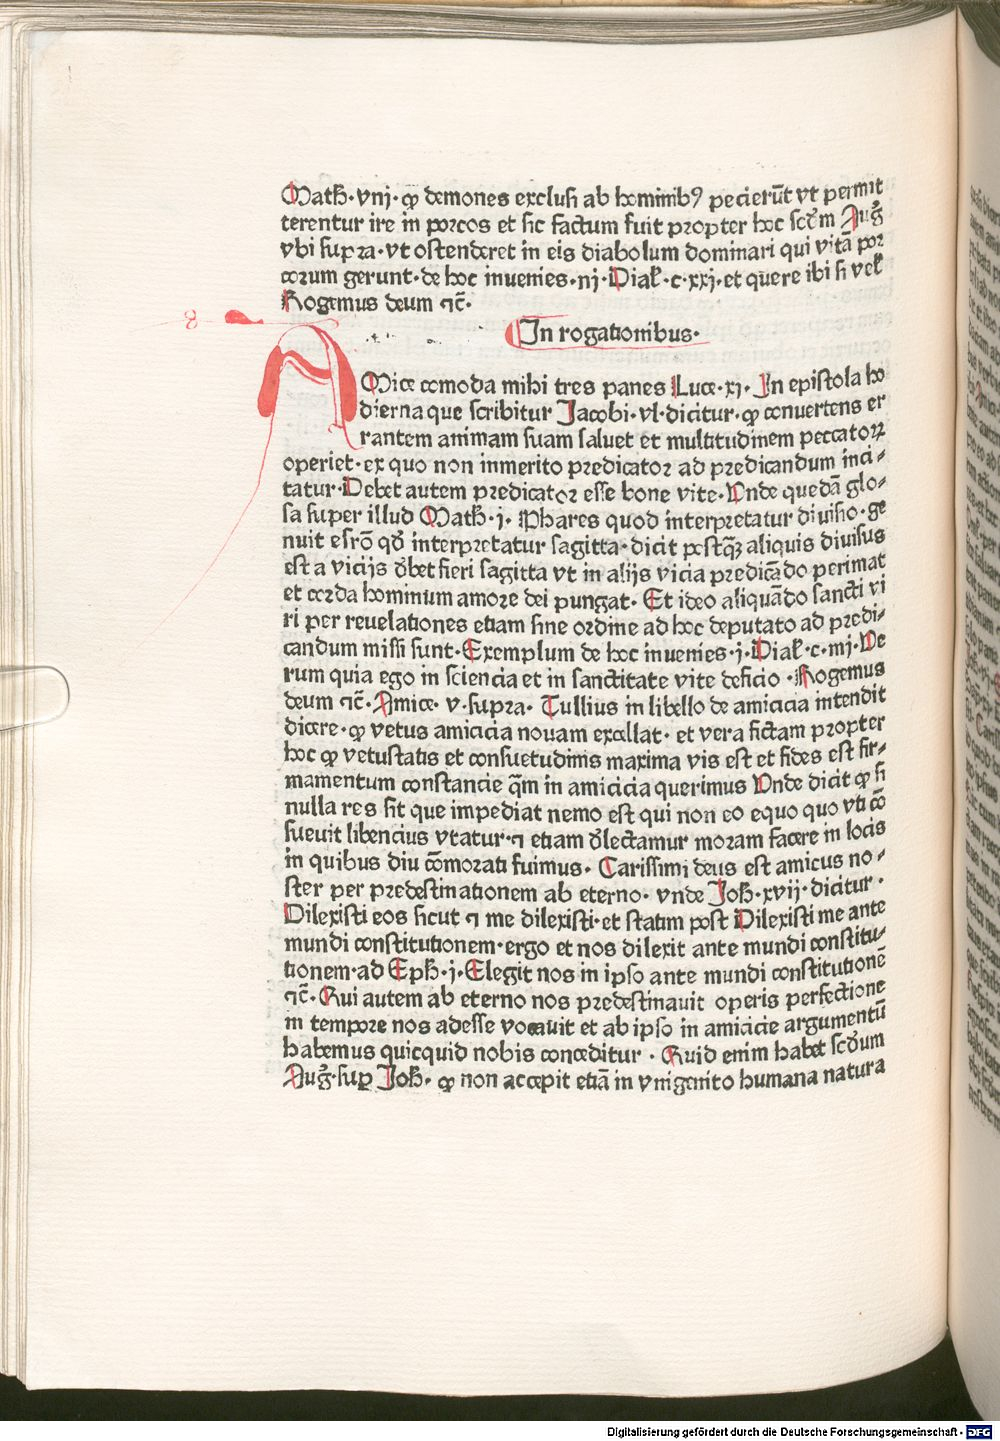 Math̄·vnj·ꝙ demones exclusi ab hominibꝰ pecierūt vt permit
terentur ire in porcos et sic factum fuit propter hoc scd̄m Auḡ
vbi supra·vt ostenderet in eis diabolum dominari qui vitā por
corum gerunt·de hoc inuenies·nj·Dial̄·c·xxj·et quere ibi si vel̄
Rogemus deum ⁊c̄·
8
In rogationibus·
AMice comoda mihi tres panes Luce·xj·In epistola ho
dierna que scribitur Jacobi·vl·dicitur·ꝙ conuertens er
rantem animam suam saluet et multitudinem peccatoꝝ
operiet·ex quo non inmerito predicator ad predicandum inci⸗
tatur·Debet autem predicator esse bone vite·Vnde quedā glo⸗
sa super illud Math̄·j·Phares quod interpretatur diuisio·ge
nuit esrō qd̄ interpretatur sagitta·dicit postꝗ̄ aliquis diuisus
est a vicijs d̄bet fieri sagitta vt in alijs vicia predicādo perimat
et corda hominum amore dei pungat·Et ideo aliquādo sancti vi
ri per reuelationes etiam sine ordine ad hoc deputato ad predi⸗
candum missi sunt·Exemplum de hoc inuenies·j·Dial̄·c·mj·Ve
rum quia ego in sciencia et in sanctitate vite deficio·Rogemus
deum ⁊c̄·Amice·v·supra·Tullius in libello de amicicia intendit
dicere·ꝙ vetus amicicia nouam excellat·et vera fictam propter
hoc ꝙ vetustatis et consuetudinis maxima vis est et fides est fir⸗
mamentum constancie q̄m in amicicia querimus Vnde dicit ꝙ si
nulla res sit que impediat nemo est qui non eo equo quo vti cō
sueuit libencius vtatur·⁊ etiam d̄lectamur moram facere in locis
in quibus diu cōmorati fuimus·Carissimi deus est amicus no⸗
ster per predestinationem ab eterno·vnde Joh̄·xvij·dicitur·
Dilexisti eos sicut ⁊ me dilexisti·et statim post Dilexisti me ante
mundi constitutionem·ergo et nos dilexit ante mundi constitu⸗
tionem·ad Eph̄·j·Elegit nos in ipso ante mundi constitutionē
⁊c̄·Qui autem ab eterno nos predestinauit operis perfectione
in tempore nos adesse vocauit et ab ipso in amicicie argumentū
habemus quicquid nobis conceditur·Quid enim habet scd̄um
Auḡ·suꝑ Joh̄·ꝙ non accepit etiā in vnigenito humana natura
Digitalisierung gefördert durch die Deutsche Forschungsgemeinschaft - DFG